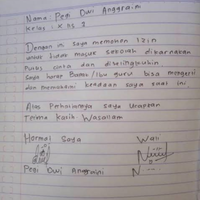 Nama Pegi Dwi Anggraini
Kelas : X IIS 1
Dengan ini saya memohon izin
untuk tidak masuk sekolah dikarnakan
Saya harap Bapak/Ibu guru bisa mengerti
dan memahami keadaan saya saat ini
Atas Perhatiannya saya ucapkan
Terima kasih Wassalam
Hormat Saya Wali
Pegi Dwi Anggraini